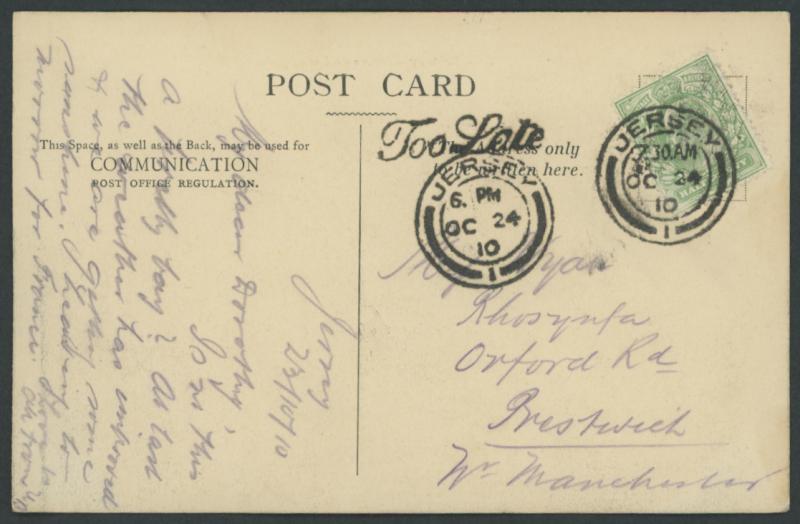 POST CARD
This Space, as well as the Back, may be used for
COMMUNICATION
POST OFFICE REGULATION.
Too Late
The Address only
to be written here.
JERSEY
6. PM
OC 24
10
1
JERSEY
7.30 AM
OC 24
10
1
Ryan
Rhosynfa
Oxford Rd
Prestwich
Nr. Manchester
Jersey
23/10/10
My dear Dorothy,
Is not this
a pretty bay? At last
the weather has improved
& we are getting some
sunshine. Leaving to
morrow for France.